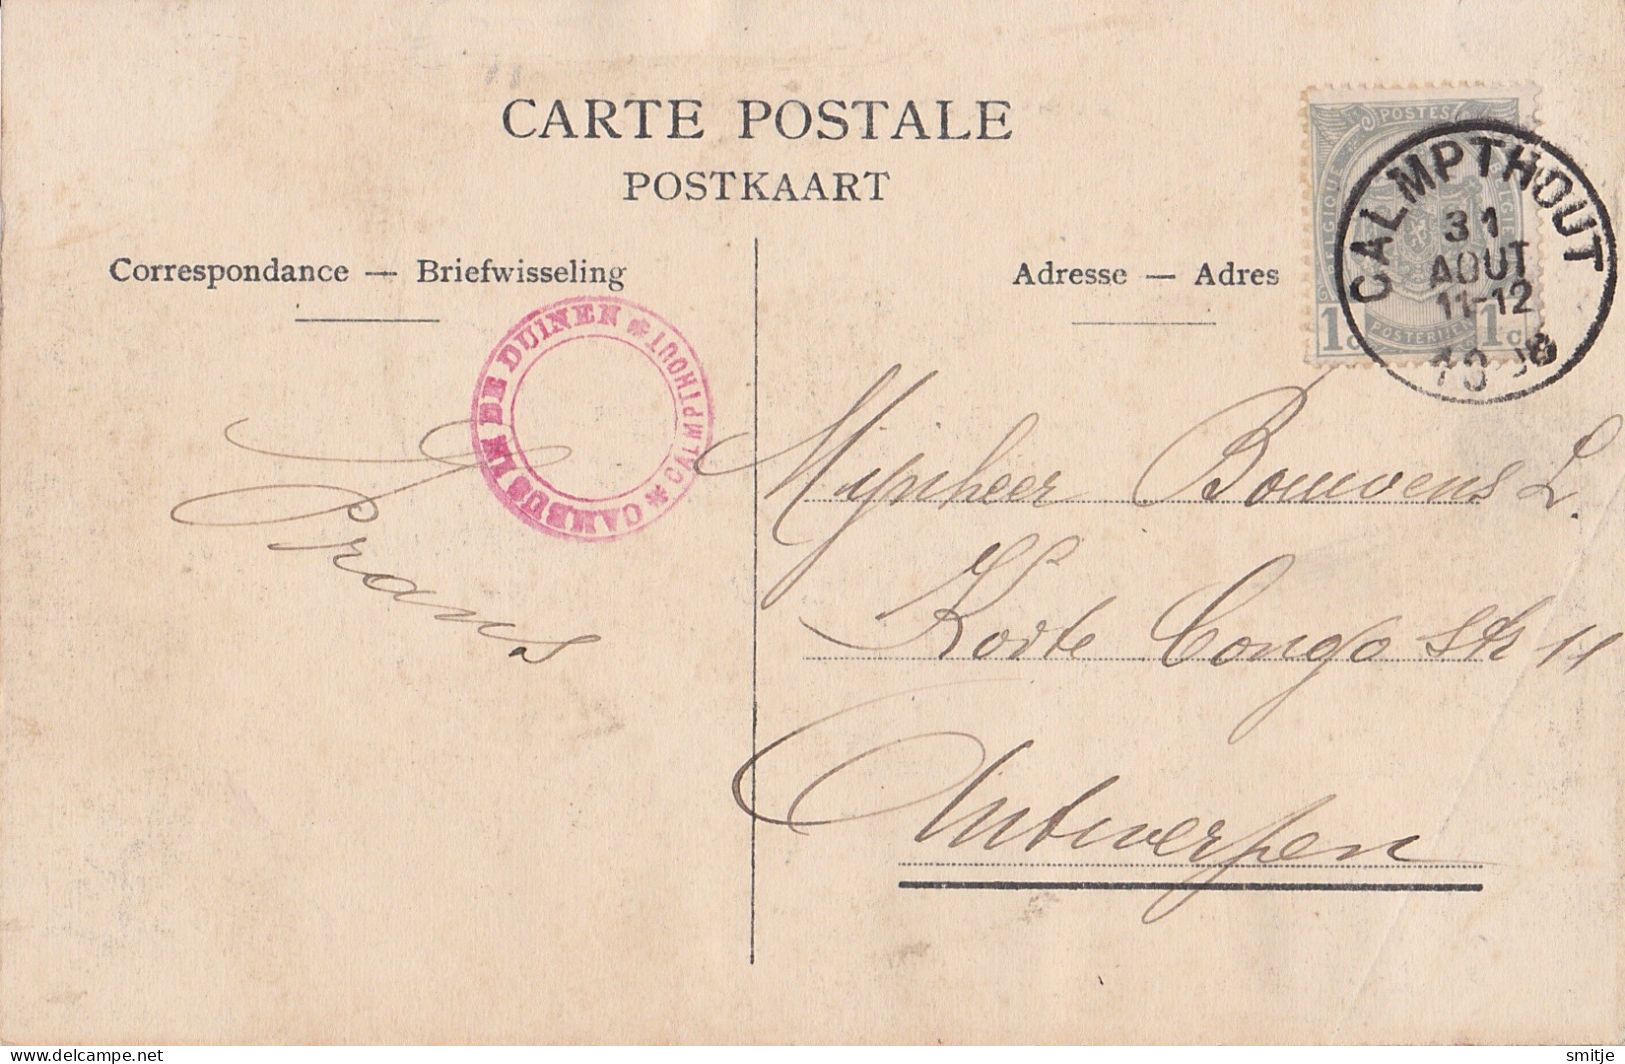 CARTE POSTALE
POSTKAART
Correspondance — Briefwisseling
Adresse — Adres
POSTES
BELGIQUE
1c 1c
POSTERIJEN
CALMPTHOUT
31
AOUT
11-12
CAMBUS IN DE DUINEN * CALMPTHOUT *
Frans
Mijnheer Bouwens L.
Korte Congo str 11
Antwerpen
delcampe.net
smitje